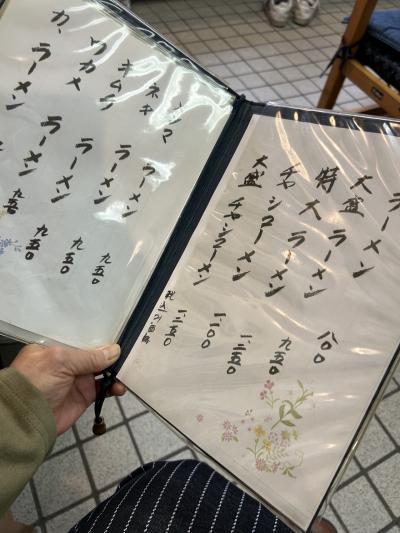 ラーメン 八〇〇
大盛 ラーメン 九五〇
特大 ラーメン 一、一五〇
チャシューメン 一、一〇〇
大盛 チャシューメン 一、三五〇
税込の価格
ラーメン 九五〇
ネギ ラーメン 九五〇
キムチ ラーメン 九五〇
ワカメ ラーメン 九五〇
ラーメン